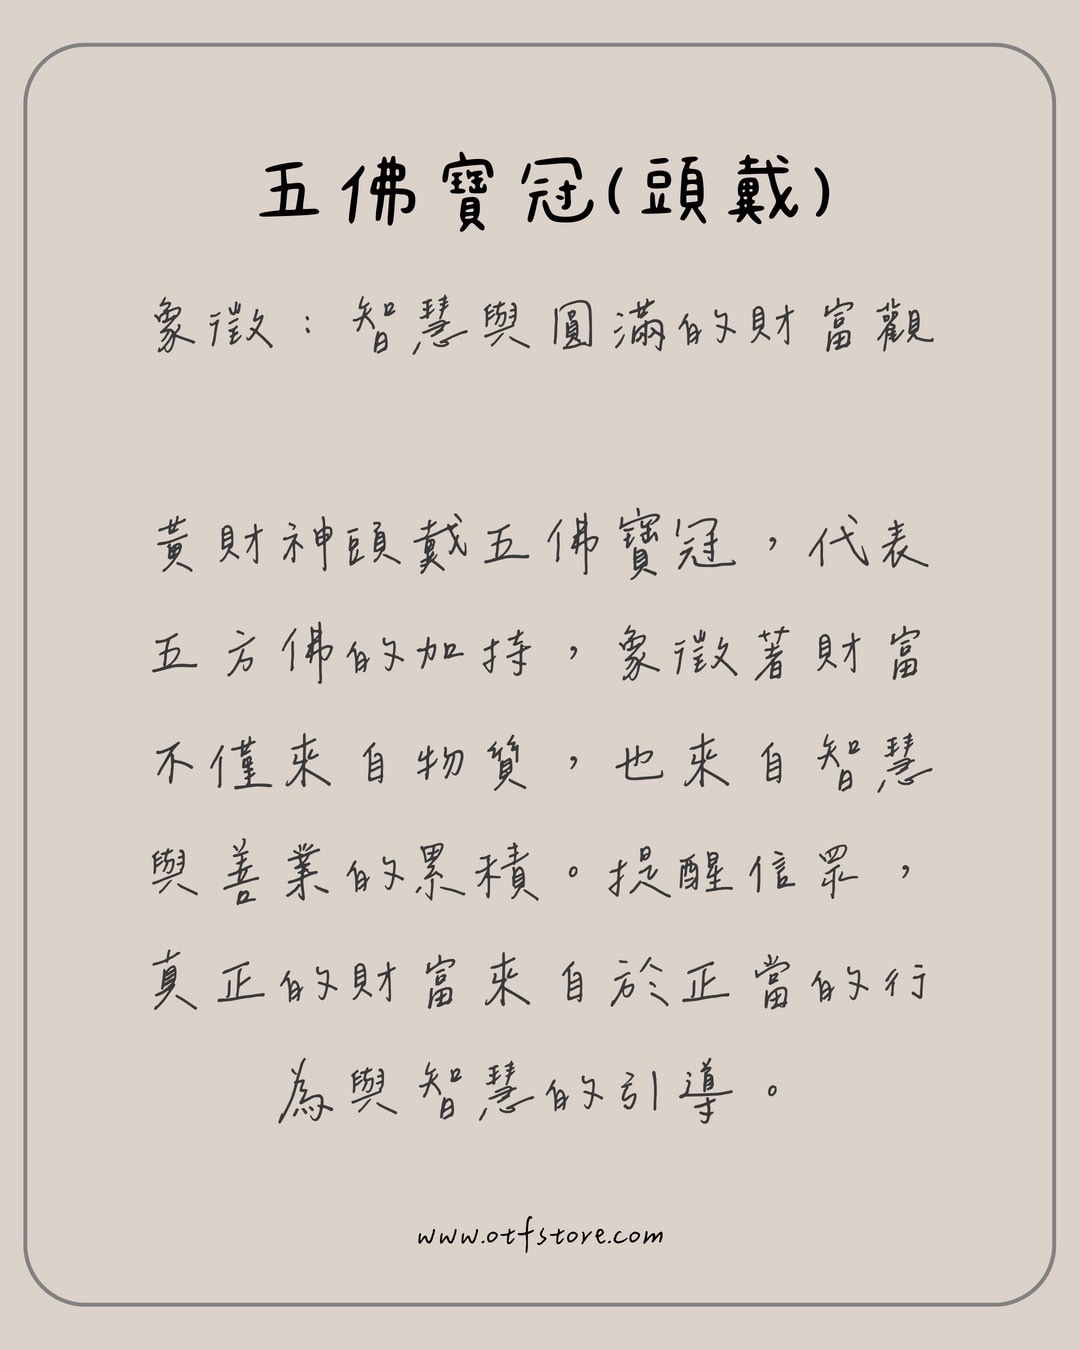 五佛寶冠(頭戴)
象徵：智慧與圓滿的財富觀
黃財神頭戴五佛寶冠，代表
五方佛的加持，象徵著財富
不僅來自物質，也來自智慧
與善業的累積。提醒信眾，
真正的財富來自於正當的行
為與智慧的引導。
www.otfstore.com